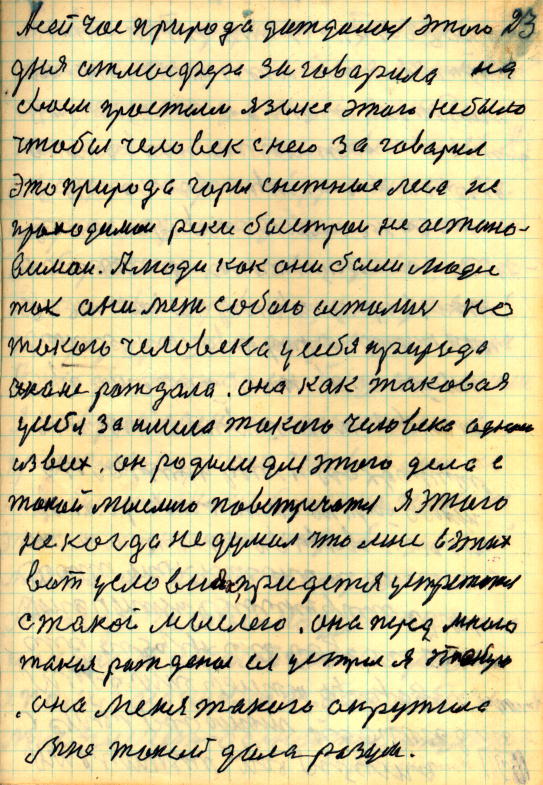 23
час природа дождалась этого
дня атмосфера заговорила на
своем простым языке этого небыло
чтобы человек снею заговорил
Это природа горы снежные леса не
проходимаи реки быстраи не остано-
вимаи. А люди как они были люди
так они меж собою остались но
такого человека усебя природа
она не рождала. она как таковая
усебя заимела такого человека одного
извсех. он родили для этого дела с
такой мыслию повстречатся Я этого
некогда не думал что мне в этих
вот условиях придется устретится
стакой мыслию. она перед мною
такая рожденая ее устрел Я
. она меня такого окружила
мне такой дала разум.